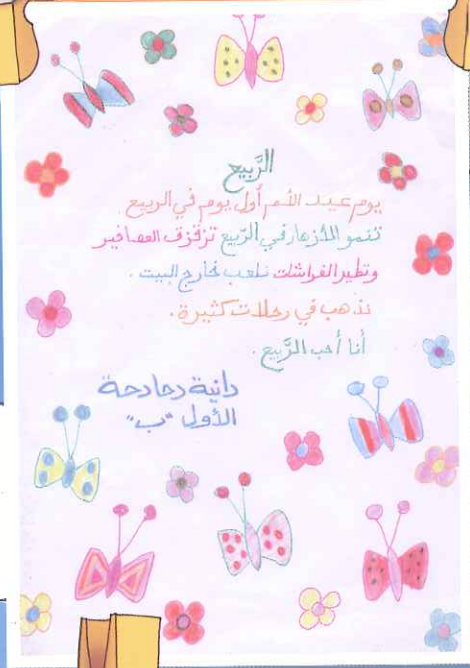 الرَّبيع
يوم عيد الأم أول يوم في الربيع
تنمو الأزهار في الرَّبيع تزقزق العصافير
وتطير الفراشات نلعب خارج البيت .
نذهب في رحلات كثيرة .
أنا أحب الرَّبيع .
دانية دحادحة
الأول "ب"